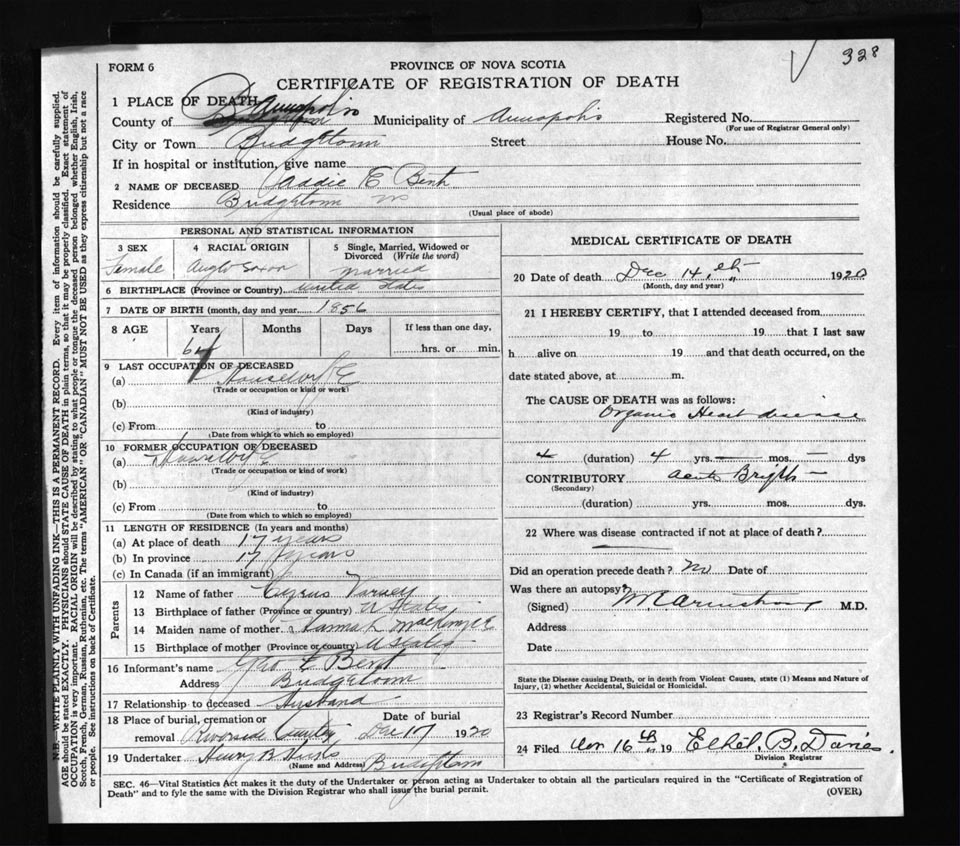 328
FORM 6
PROVINCE OF NOVA SCOTIA
CERTIFICATE OF REGISTRATION OF DEATH
1 PLACE OF DEATH
County of Annapolis Municipality of Annapolis Registered No.
(For use of Registrar General only)
City or Town Bridgetown Street House No.
If in hospital or institution, give name
2 NAME OF DECEASED Addie E Bent
Residence Bridgetown NS
(Usual place of abode)
PERSONAL AND STATISTICAL INFORMATION
3 SEX 4 RACIAL ORIGIN 5 Single, Married, Widowed or Divorced (Write the word)
Female Anglo Saxon Married
6 BIRTHPLACE (Province or Country) United States
7 DATE OF BIRTH (month, day and year) 1856
8 AGE Years Months Days If less than one day,
64 hrs. or min.
9 LAST OCCUPATION OF DECEASED
(a) Housewife
(Trade or occupation or kind or work)
(b)
(Kind of industry)
(c) From to
(Date from which to which so employed)
10 FORMER OCCUPATION OF DECEASED
(a) Housewife
(Trade or occupation or kind of work)
(b)
(Kind of industry)
(c) From to
(Date from which to which so employed)
11 LENGTH OF RESIDENCE (In years and months)
(a) At place of death 17 years
(b) In province 17 years
(c) In Canada (if an immigrant)
Parents
12 Name of father Cyrus Varney
13 Birthplace of father (Province or country) U States
14 Maiden name of mother Hannah MacKenzie
15 Birthplace of mother (Province or country) U States
16 Informant's name Geo E Bent
Address Bridgetown
17 Relationship to deceased Husband
18 Place of burial, cremation or Date of burial
removal Riverside Cemetery Dec 17 1920
19 Undertaker Henry B Hicks
(Name and Address) Bridgetown
MEDICAL CERTIFICATE OF DEATH
20 Date of death Dec 14, th 1920
(Month, day and year)
21 I HEREBY CERTIFY, that I attended deceased from
19 to 19 that I last saw
h alive on 19 and that death occurred, on the
date stated above, at m.
The CAUSE OF DEATH was as follows:
Organic Heart disease
(duration) 4 yrs. mos. dys
CONTRIBUTORY Acute Brights
(Secondary)
(duration) yrs. mos. dys.
22 Where was disease contracted if not at place of death?
Did an operation precede death? No Date of
Was there an autopsy?
(Signed) M.D.
Address
Date
State the Disease causing Death, or in death from Violent Causes, state (1) Means and Nature of
Injury, (2) whether Accidental, Suicidal or Homicidal.
23 Registrar's Record Number
24 Filed 16th 19 Ethel. B. Davies.
Division Registrar
SEC. 46—Vital Statistics Act makes it the duty of the Undertaker or person acting as Undertaker to obtain all the particulars required in the "Certificate of Registration of
Death" and to fyle the same with the Division Registrar who shall issue the burial permit.
(OVER)
N.B.—WRITE PLAINLY WITH UNFADING INK—THIS IS A PERMANENT RECORD. Every item of information should be carefully supplied.
AGE should be stated EXACTLY. PHYSICIANS should STATE CAUSE OF DEATH in plain terms, so that it may be properly classified. Exact statement of
OCCUPATION is very important. RACIAL ORIGIN will be described by stating to what people or tongue the deceased person belonged whether English, Irish,
Scotch, French, German, Russian, Ruthenian, etc. The terms "AMERICAN" OR "CANADIAN" MUST NOT BE USED as they express citizenship but not a race
or people. See instructions on back of Certificate.